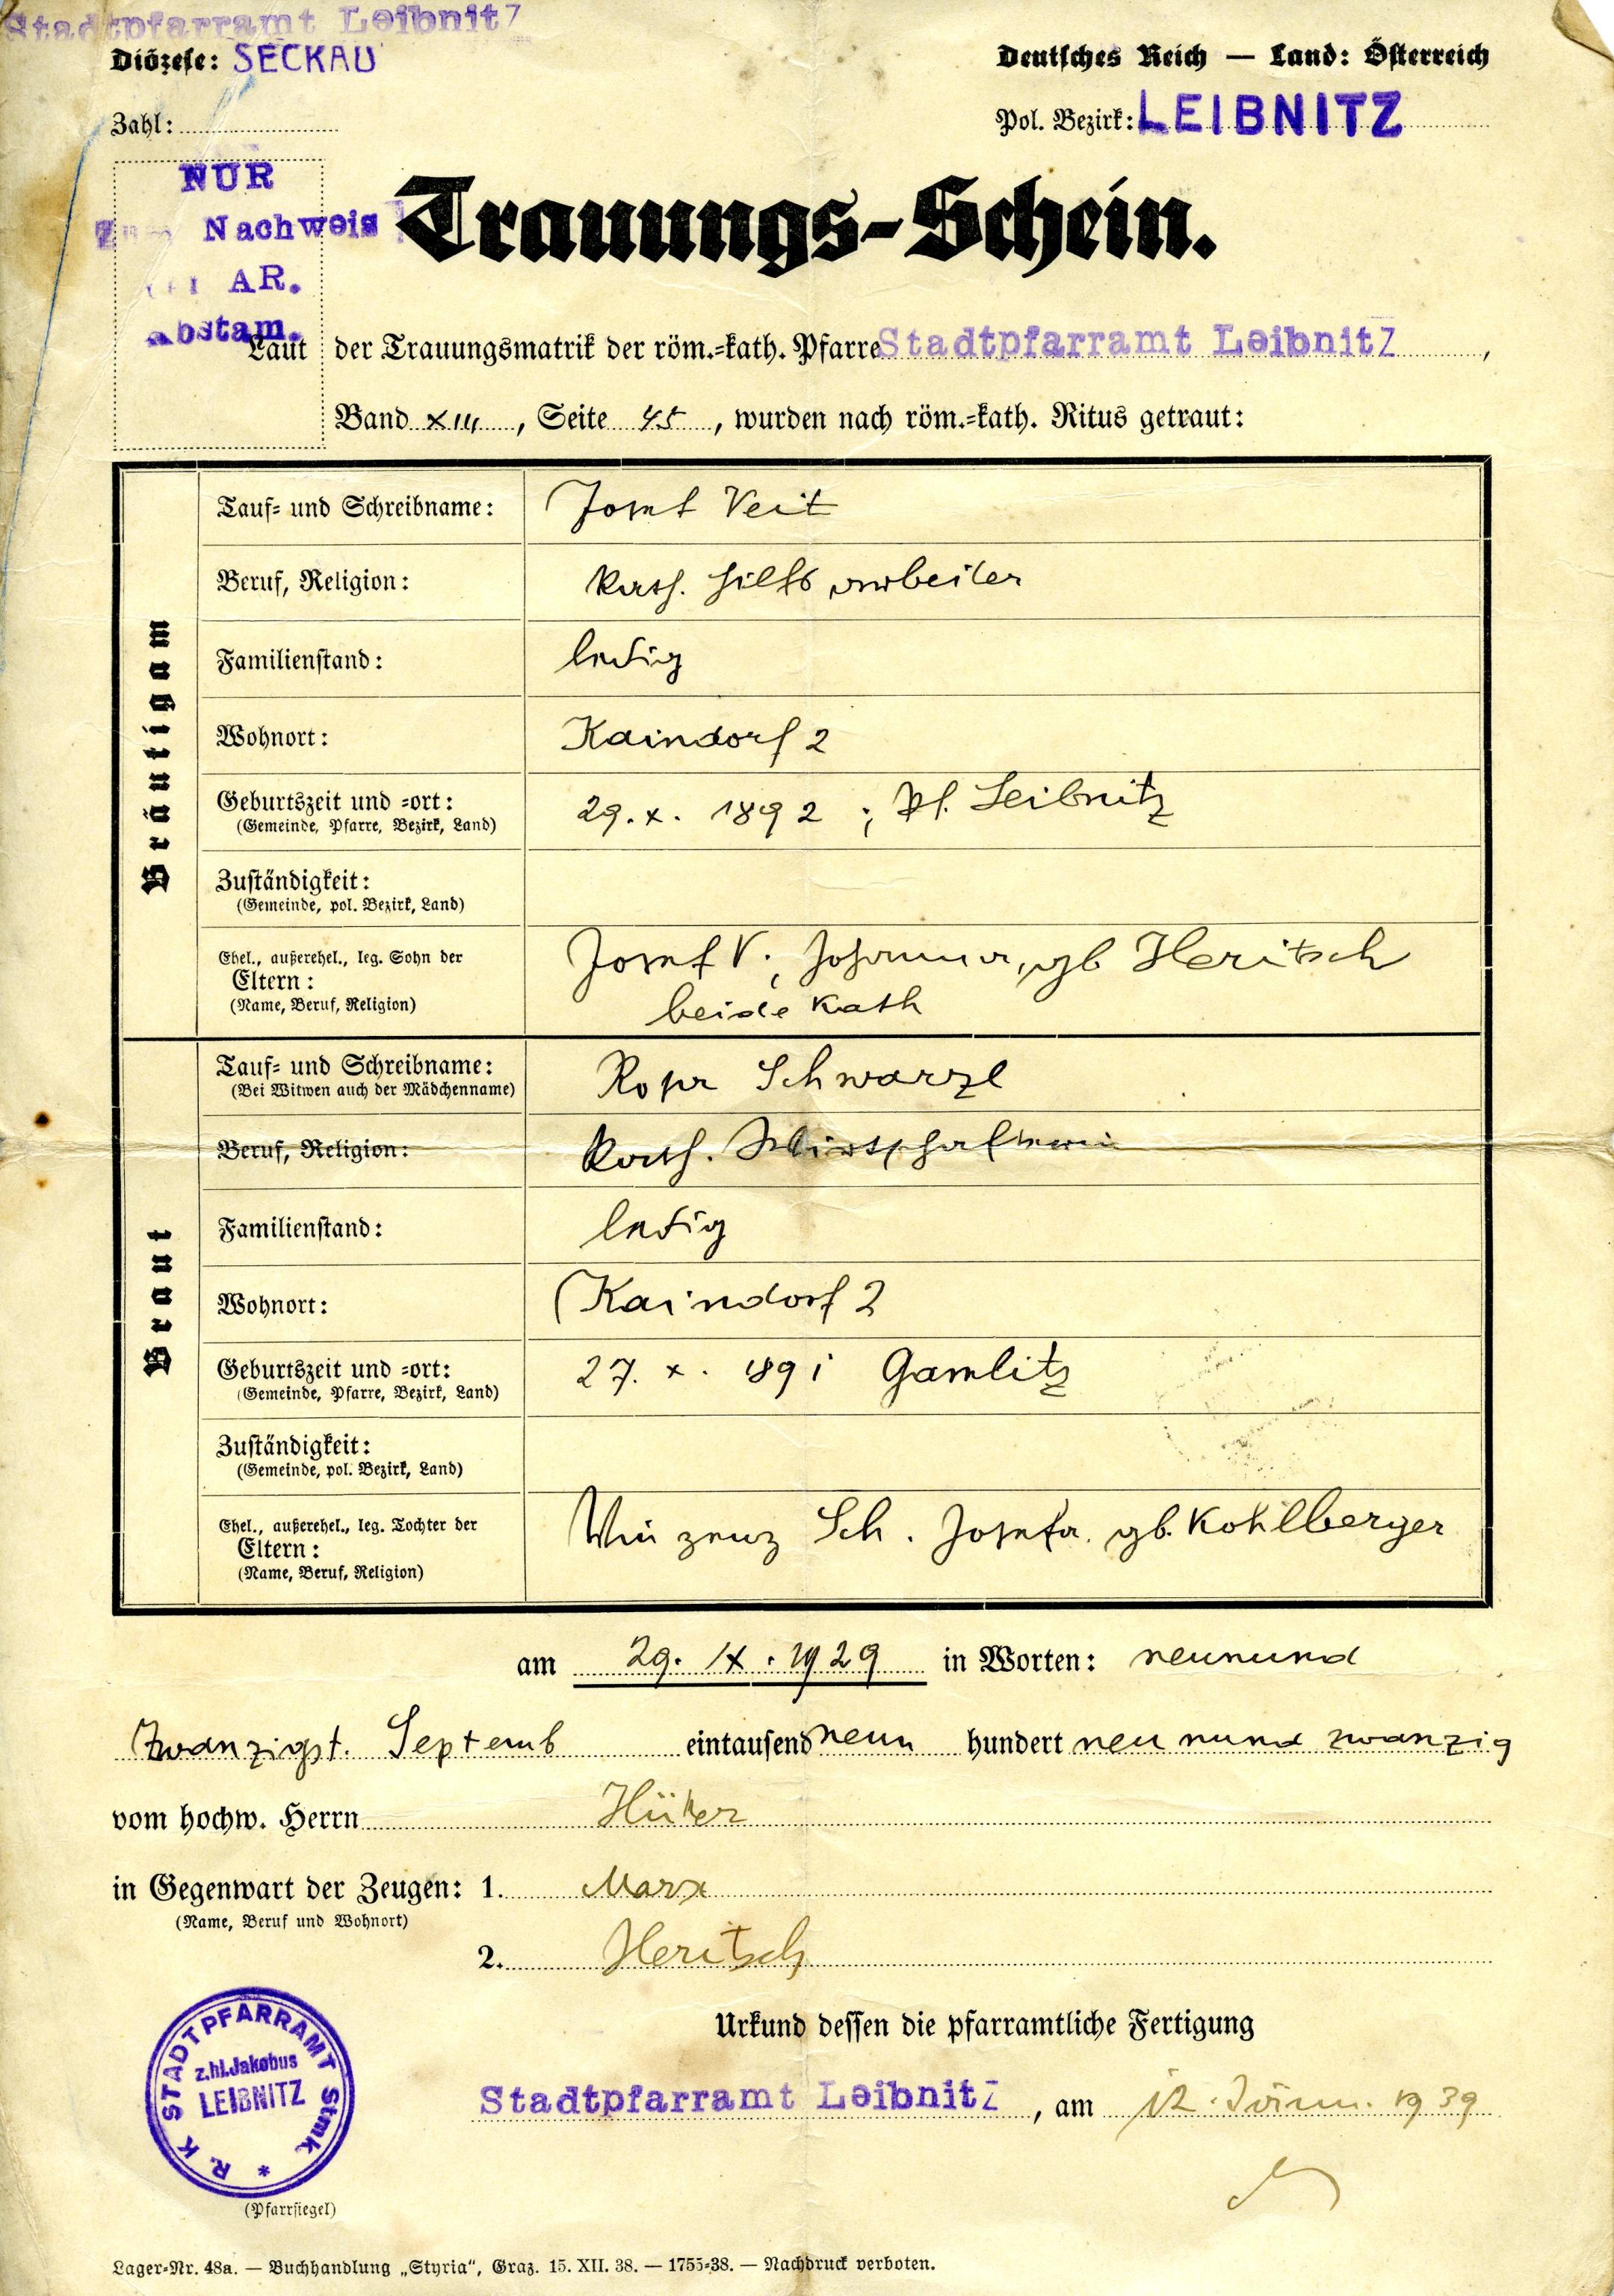 Stadtpfarramt Leibnitz
Diözese: SECKAU
Deutsches Reich — Land: Österreich
Zahl:
Pol. Bezirk: LEIBNITZ
NUR
Nachweis
AR.
Abstam.
Trauungs-Schein.
Laut der Trauungsmatrik der röm.-kath. Pfarre Stadtpfarramt Leibnitz,
Band XIII, Seite 45, wurden nach röm.-kath. Ritus getraut:
Bräutigam
Tauf- und Schreibname: Josef Veit
Beruf, Religion: kath. Hilfsarbeiter
Familienstand: ledig
Wohnort: Kaindorf 2
Geburtszeit und -ort: 29. X. 1892 ; Pf. Leibnitz
(Gemeinde, Pfarre, Bezirk, Land)
Zuständigkeit:
(Gemeinde, pol. Bezirk, Land)
Ehel., außerehel., leg. Sohn der
Eltern: Josef V., Johanna, gb Heritsch
(Name, Beruf, Religion) beide kath
Braut
Tauf- und Schreibname: Rosa Schwarzl
(Bei Witwen auch der Mädchenname)
Beruf, Religion: kath.
Familienstand: ledig
Wohnort: Kaindorf 2
Geburtszeit und -ort: 27. X. 1891 Gamlitz
(Gemeinde, Pfarre, Bezirk, Land)
Zuständigkeit:
(Gemeinde, pol. Bezirk, Land)
Ehel., außerehel., leg. Tochter der
Eltern: Vinzenz Sch. Josefa gb. Kohlberger
(Name, Beruf, Religion)
am 29. IX. 1929 in Worten: neunund
zwanzigst. Septemb eintausend neun hundert neunundzwanzig
vom hochw. Herrn
in Gegenwart der Zeugen: 1. Marx
(Name, Beruf und Wohnort)
2. Heritsch
Urkund dessen die pfarramtliche Fertigung
Stadtpfarramt Leibnitz, am 12. Jänn. 1939
R. K. STADTPFARRAMT Stmk. *
z.hl.Jakobus
LEIBNITZ
(Pfarrsiegel)
Lager-Nr. 48a. — Buchhandlung „Styria“, Graz. 15. XII. 38. — 1755-38. — Nachdruck verboten.